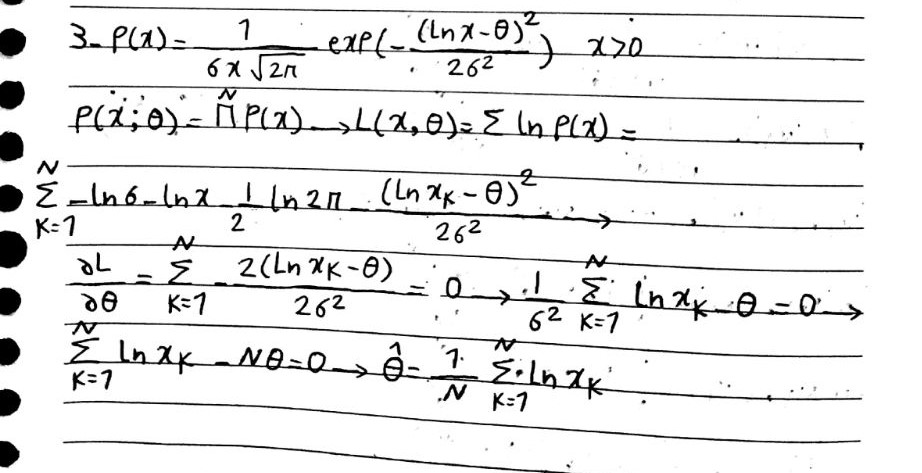 3- P(x) = 1 / (σx√2π) exp(-(lnx-θ)² / 2σ²) x>0
P(x;θ) = Π^N P(x) → L(x,θ) = Σ ln P(x) =
Σ_{K=1}^N -lnσ - lnx - 1/2 ln 2π - (ln x_K - θ)² / 2σ² →
∂L/∂θ = Σ_{K=1}^N - 2(Ln x_K - θ) / 2σ² = 0 → 1/σ² Σ_{K=1}^N Ln x_K - θ = 0 →
Σ_{K=1}^N ln x_K - Nθ = 0 → θ̂ = 1/N Σ_{K=1}^N ln x_K